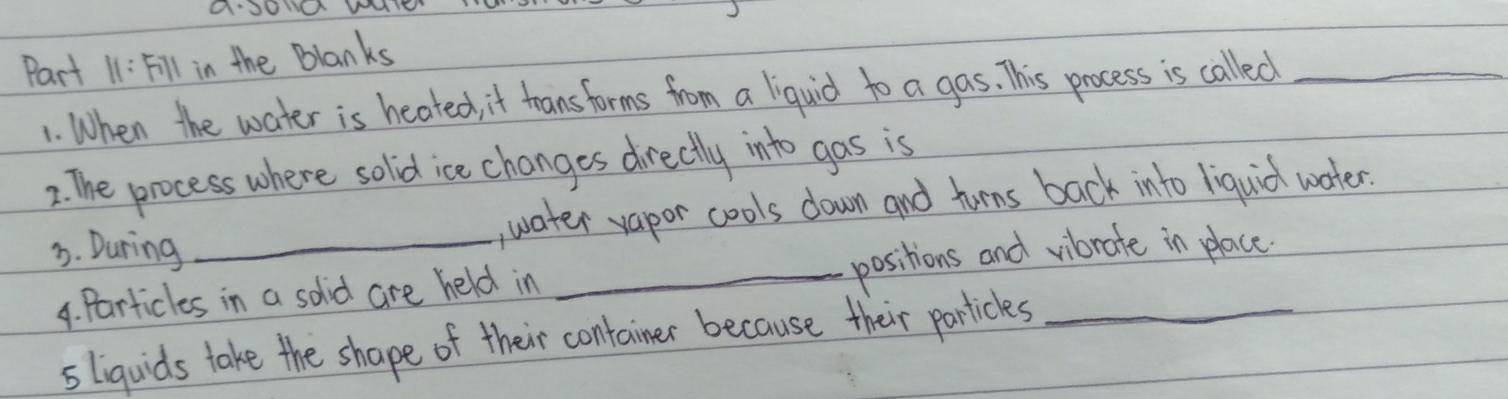 a. Solid water
Part 11: Fill in the Blanks
1. When the water is heated, it transforms from a liquid to a gas. This process is called ________
2. The process where solid ice changes directly into gas is
3. During ________, water vapor cools down and turns back into liquid water.
4. Particles in a solid are held in ________ positions and vibrate in place.
5 Liquids take the shape of their container because their particles ________